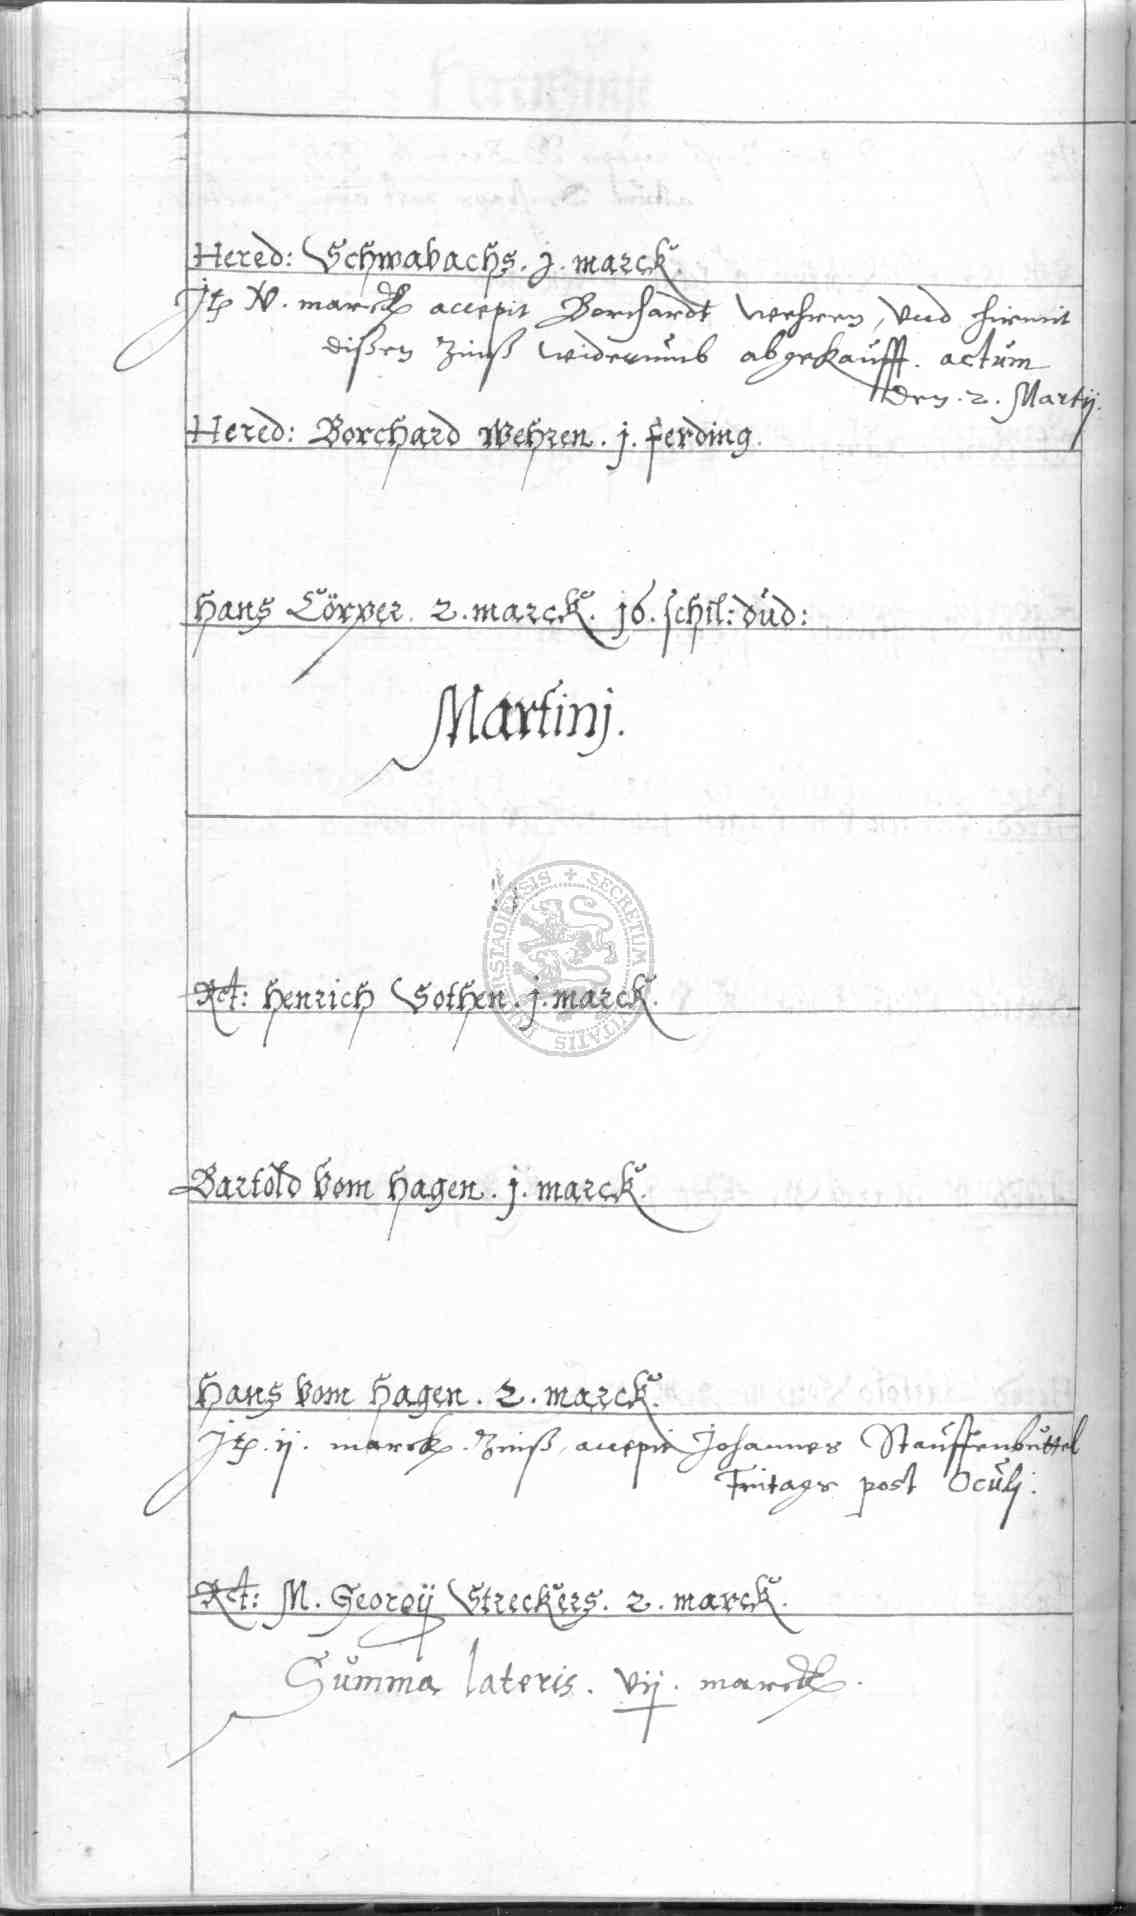 Hered: Schwabachs. j. marck
Jtem XV. marck accepit Borchardt Wehren, vnd hirmit
dißen Zinß widerumb abgekaufft. actum
den. 2. Martij.
Hered: Borchard Wehren. j. ferding.
Hans Cörver. 2. marck. 16. schil: düd:
Martinj.
Rct: Henrich Sothen. j. marck.
Bartold vom Hagen. j. marck.
Hans vom Hagen. 2. marck.
Jtem ij. marck. Zinß, accepit Johannes Stauffenbüttel
Fritags post Oculj.
Rct: M. Georgij Streckers. 2. marck.
Summa lateris. vij. marck.
SECRETUM CIVITATIS